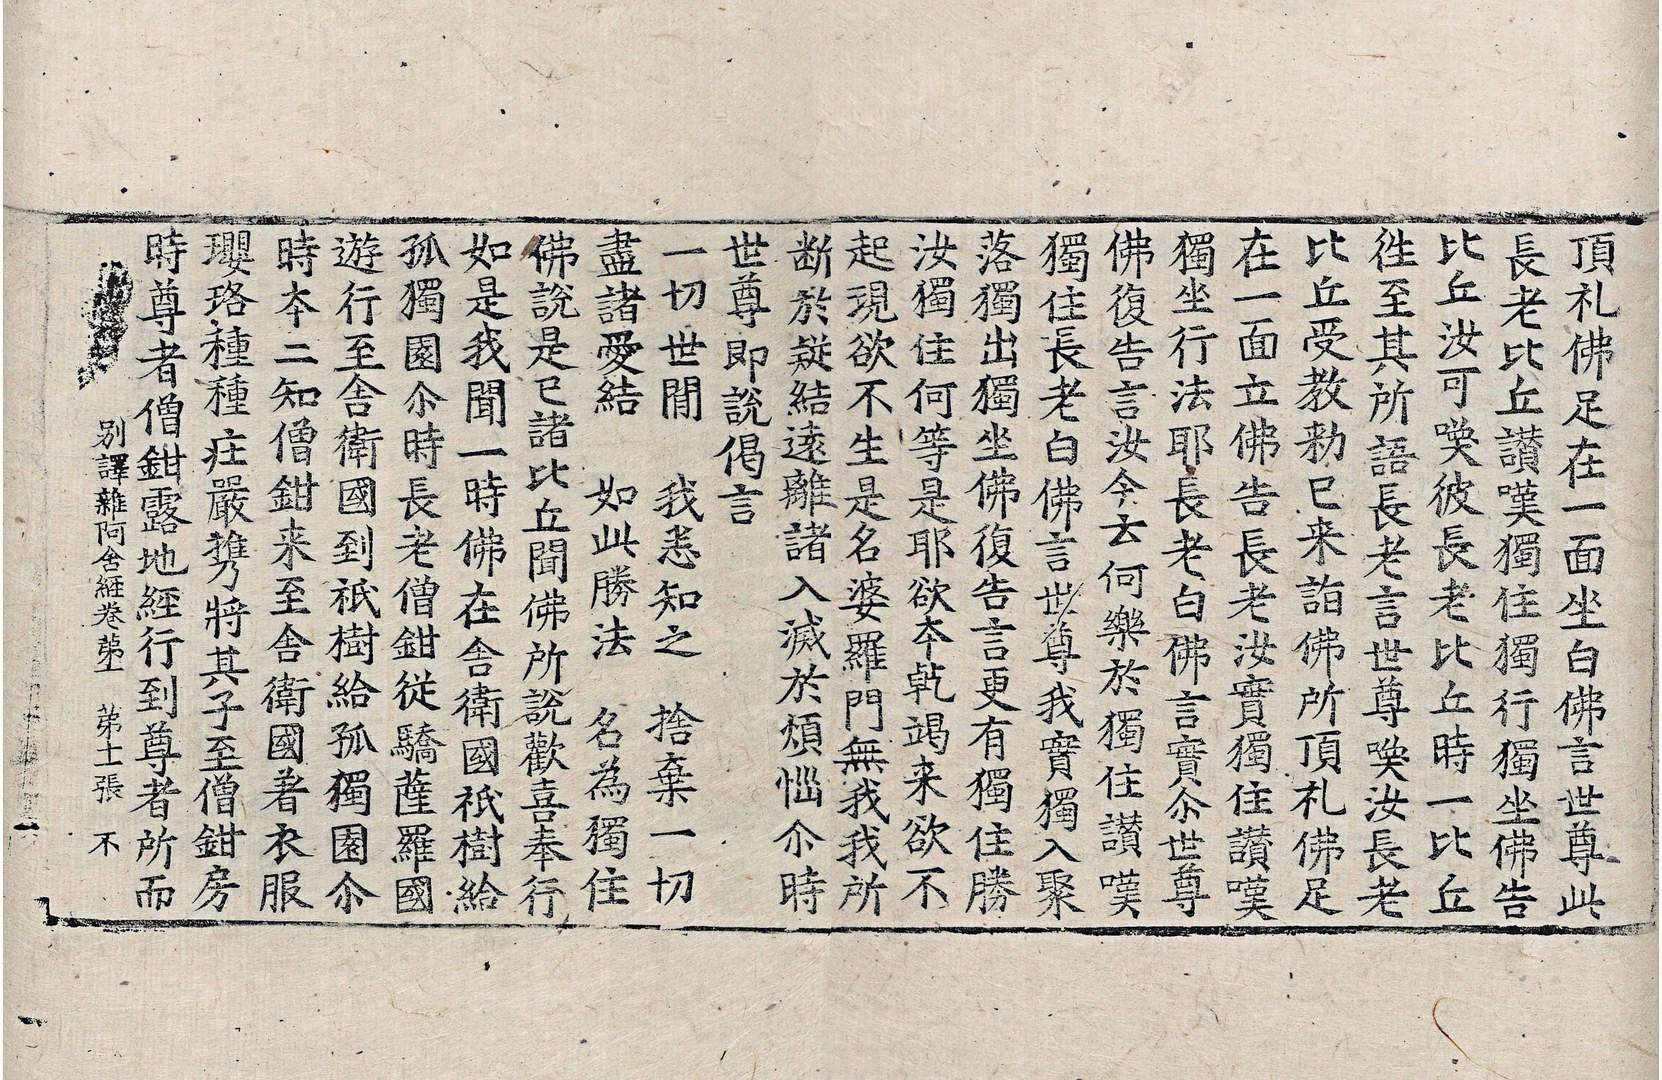 頂礼佛足在一面坐白佛言世尊此
長老比丘讃嘆獨住獨行獨坐佛告
比丘汝可喚彼長老比丘時一比丘
徃至其所語長老言世尊喚汝長老
比丘受教勑已来詣佛所頂礼佛足
在一面立佛告長老汝實獨住讃嘆
獨坐行法耶長老白佛言實尒世尊
佛復告言汝今云何樂於獨住讃嘆
獨住長老白佛言世尊我實獨入聚
落獨出獨坐佛復告言更有獨住勝
汝獨住何等是耶欲夲乹竭来欲不
起現欲不生是名婆羅門無我我所
断於疑結遠離諸入滅於煩惱尒時
世尊即說偈言
一切世間　我悉知之　捨棄一切
盡諸愛結　如此勝法　名為獨住
佛說是已諸比丘聞佛所說歡喜奉行
如是我聞一時佛在舎衛國祇樹給
孤獨園尒時長老僧鉗從驕薩羅國
遊行至舎衛國到祇樹給孤獨園尒
時夲二知僧鉗来至舎衛國著衣服
瓔珞種種庄嚴携將其子至僧鉗房
時尊者僧鉗露地經行到尊者所而
別譯雜阿舎經卷苐一　苐十一張　不